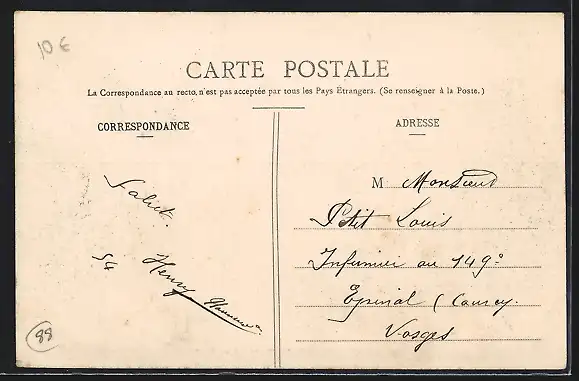 10 €
CARTE POSTALE
La Correspondance au recto, n'est pas acceptée par tous les Pays Etrangers. (Se renseigner à la Poste.)
CORRESPONDANCE
ADRESSE
M Monsieur
Petit Louis
Infirmier au 149e
Epinal (Courcy.
Vosges
Salut.
54
Henry
88